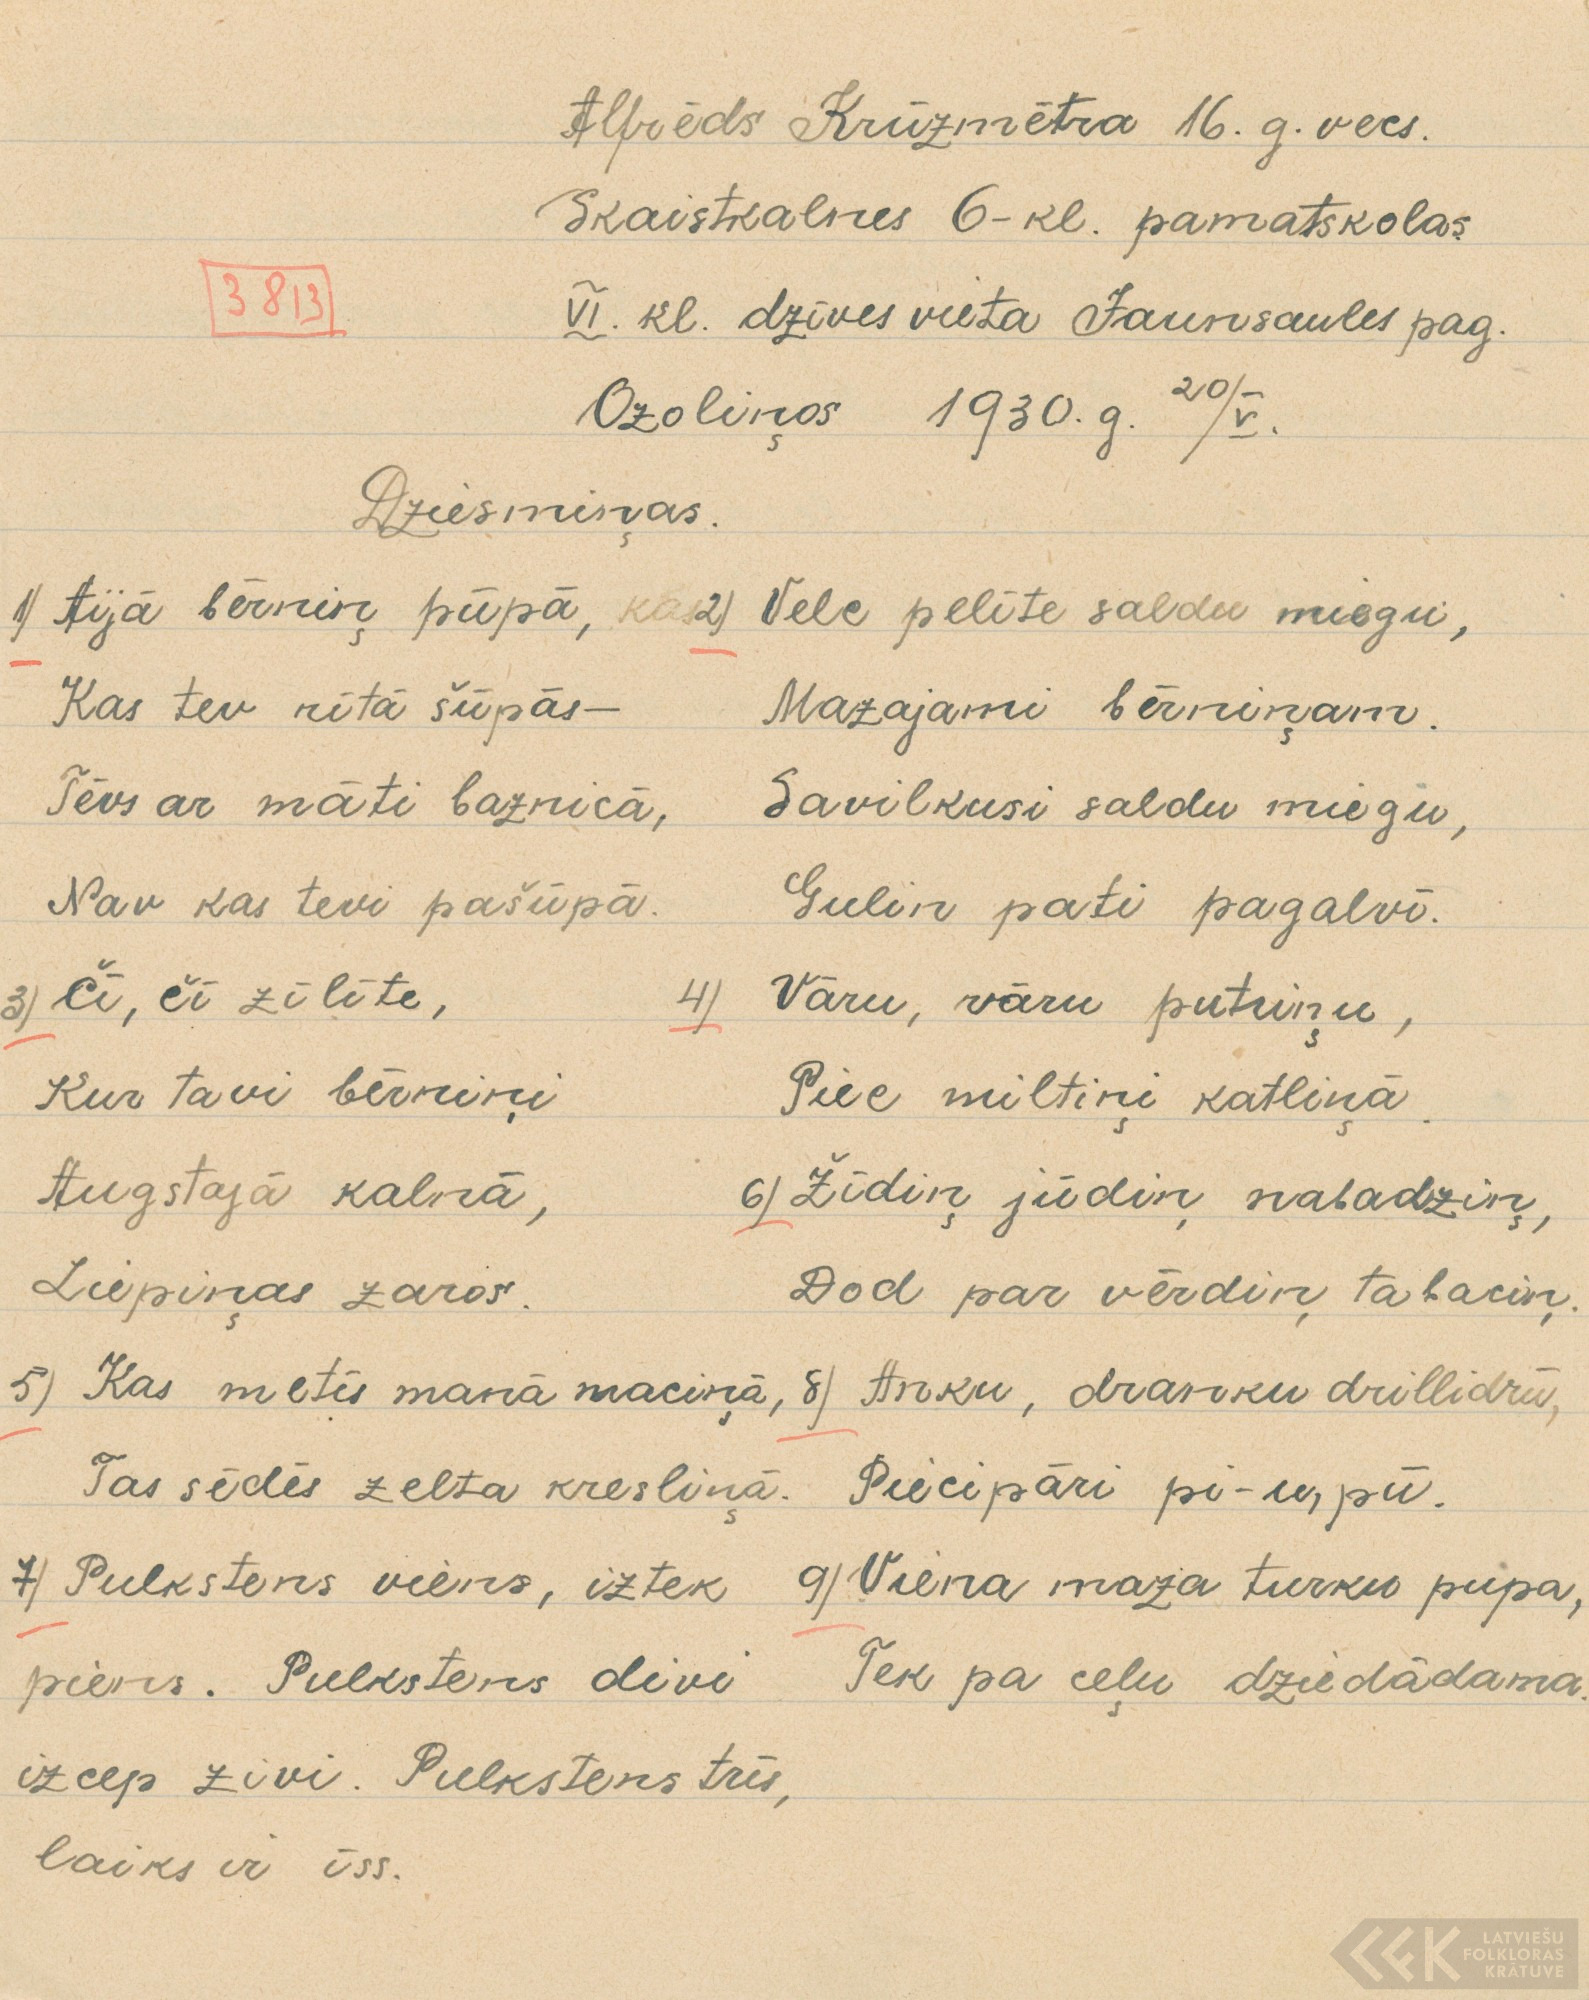 Alfrēds Krūzmētra 16. g. vecs.
Skaistkalnes 6-kl. pamatskolas
3813
VI. kl. dzīves vieta Jaunsaules pag.
Ozoliņos 1930. g. 20/V.
Dziesmiņas.
1) Aijā bērniņ pūpā, kas
Kas tev rītā šūpās—
Tēvs ar māti baznicā,
Nav kas tevi pašūpā.
2) Velc pelīte saldu miegu,
Mazajami bērniņam.
Savilkusi saldu miegu,
Gulin pati pagalvī.
3) Čī, čī zīlīte,
Kur tavi bērniņi
Augstajā kalnā,
Liepiņas zaros.
4) Vāru, vāru putriņu,
Piec miltiņi katliņā.
6) Žīdiņ jūdiņ nabadziņ,
Dod par vērdiņ tabaciņ.
5) Kas metīs manā maciņā,
Tas sēdēs zelta kresliņā.
8) Anku, dranku drillidrū,
Piecipāri pi-u, pū.
7) Pulkstens viens, iztek
piens. Pulkstens divi
izcep zivi. Pulkstens trīs,
laiks ir īss.
9) Viena maza turku pupa,
Tek pa ceļu dziedādama.
LATVIEŠU
FOLKLORAS
KRĀTUVE